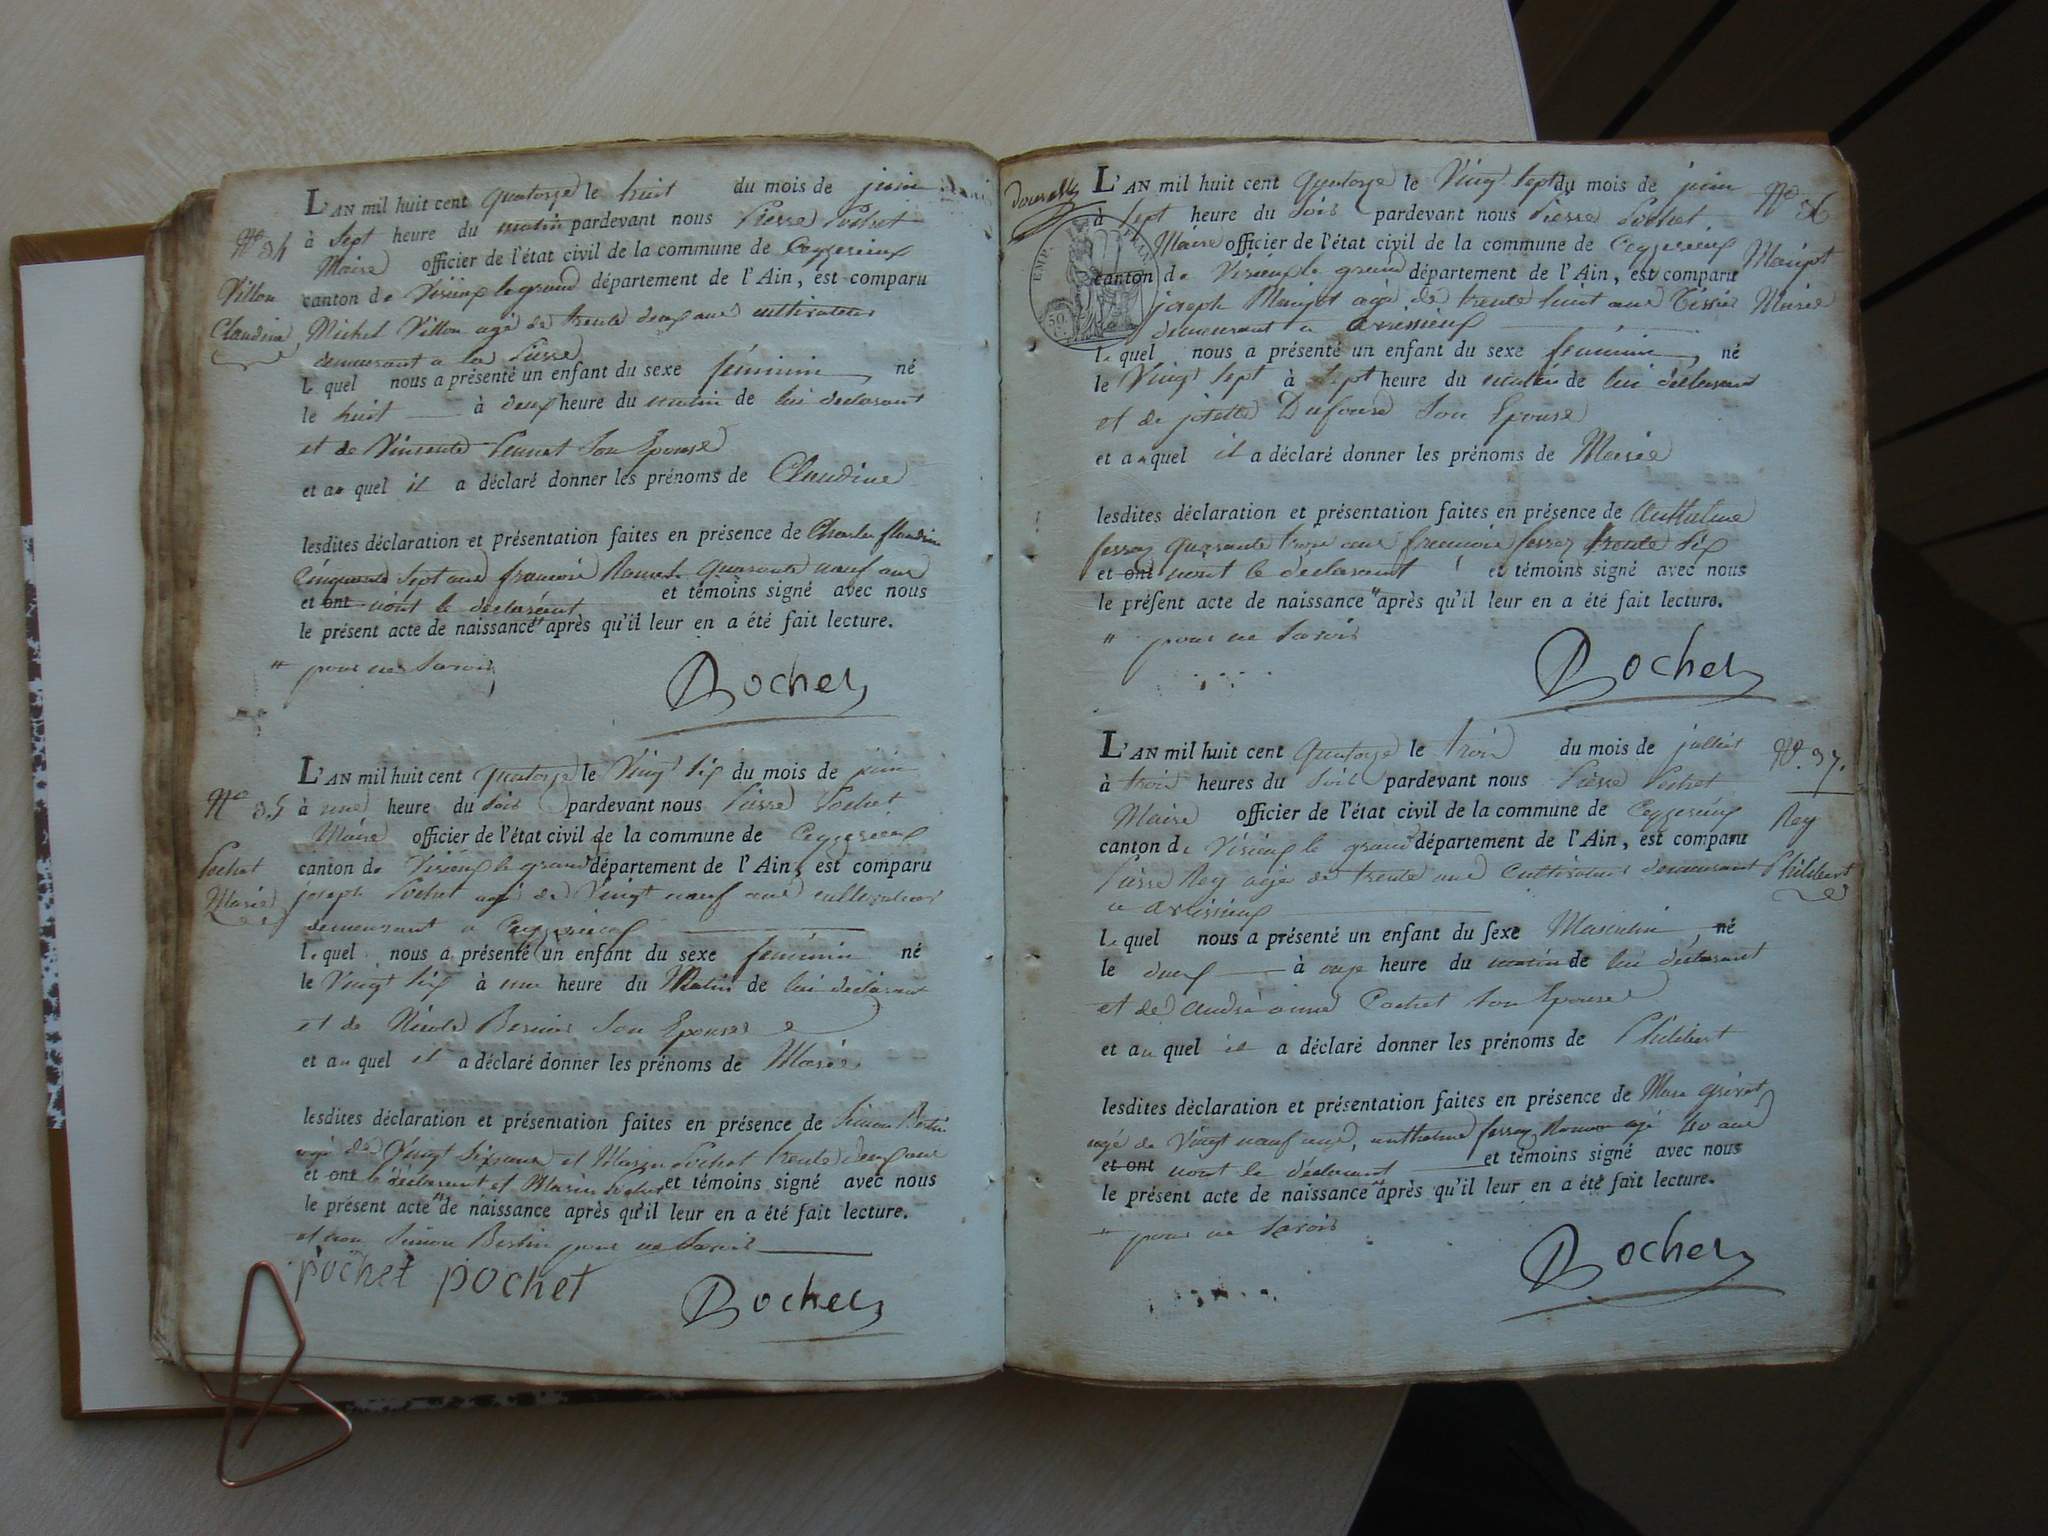 L'AN mil huit cent quatorze le huit du mois de juin
à sept heure du matin pardevant nous Pierre Pochet
Maire officier de l'état civil de la commune de Ceyzerieux
canton de Virieux le grand département de l'Ain, est comparu
Michel Villon agé de trente deux ans cultivateur
demeurant a la Pierre
Le quel nous a présenté un enfant du sexe féminin né
le huit à deux heure du matin de lui déclarant
et de Vincente son Epouse
et au quel il a déclaré donner les prénoms de Claudine
lesdites déclaration et présentation faites en présence de Charles
Cinquante sept ans francois quarante neuf ans
et ont n'ont le déclarant et témoins signé avec nous
le présent acte de naissance " après qu'il leur en a été fait lecture.
" pour ne savoir
Pochet
N° 34
Villon
Claudine
L'AN mil huit cent quatorze le Vingt six du mois de juin
à une heure du soir pardevant nous Pierre Pochet
Maire officier de l'état civil de la commune de Ceyzerieux
canton de Virieux le grand département de l'Ain, est comparu
joseph Pochet agé de Vingt neuf ans cultivateur
demeurant a Ceyzerieux
le quel nous a présenté un enfant du sexe féminin né
le Vingt six à une heure du Matin de lui déclarant
et de Nicole Bernier son Epouse
et au quel il a déclaré donner les prénoms de Marie
lesdites déclaration et présentation faites en présence de Simon Bertin
agé de Vingt six ans et Marin Pochet trente deux ans
et ont le déclarant et Marin Pochet et témoins signé avec nous
le présent acte " de naissance après qu'il leur en a été fait lecture.
et non Simon Bertin pour ne savoir
pochet pochet
Pochet
N° 35
Pochet
Marie
L'AN mil huit cent quatorze le Vingt sept du mois de juin
à sept heure du soir pardevant nous Pierre Pochet
Maire officier de l'état civil de la commune de Ceyzerieux
canton de Virieux le grand département de l'Ain, est comparu
joseph Marijot agé de trente huit ans Tissier
demeurant a avrissieux
le quel nous a présenté un enfant du sexe féminin, né
le Vingt sept à sept heure du matin de lui déclarant
et de josette Dufour son Epouse
et auquel il a déclaré donner les prénoms de Marie
lesdites déclaration et présentation faites en présence de anthelme
ferroz quarante trois ans francois ferroz trente six
et ont n'ont le déclarant et témoins signé avec nous
le présent acte de naissance " après qu'il leur en a été fait lecture.
" pour ne savoir
Pochet
N° 36
Marijot
Marie
EMP. FRAN.
50
L'AN mil huit cent quatorze le trois du mois de juillet
à trois heures du soir pardevant nous Pierre Pochet
Maire officier de l'état civil de la commune de Ceyzerieux
canton de Virieux le grand département de l'Ain, est comparu
Pierre Rey agé de trente ans Cultivateur demeurant
a avrissieux
le quel nous a présenté un enfant du sexe Masculin, né
le deux à onze heure du matin de lui déclarant
et de andré anne Pochet son Epouse
et au quel il a déclaré donner les prénoms de Philibert
lesdites déclaration et présentation faites en présence de Marc
agé de Vingt neuf ans, anthelme ferroz agé 40 ans
et ont n'ont le déclarant et témoins signé avec nous
le présent acte de naissance " après qu'il leur en a été fait lecture.
" pour ne savoir
Pochet
N°. 37.
Rey
Philibert